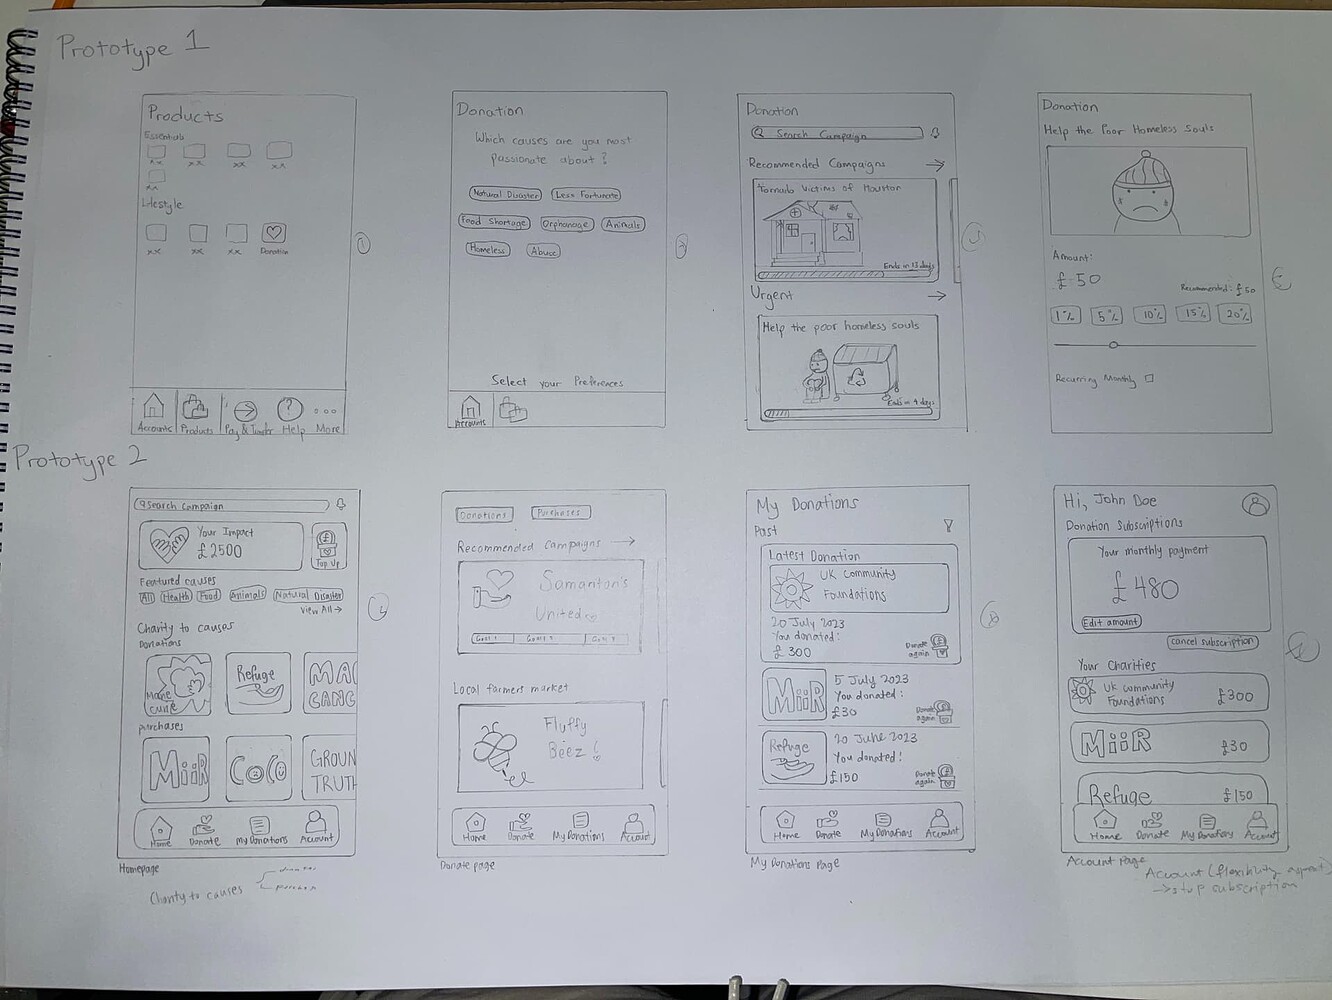 Prototype 1
Products
Essentials
xx xx xx xx
xx
Lifestyle
xx xx xx Donation
Accounts Products Pay & Transfer Help More
1
Donation
Which causes are you most
passionate about?
Natural Disaster Less Fortunate
Food Shortage Orphanage Animals
Homeless Abuse
Select your Preferences
Accounts
2
Donation
Search Campaign
Recommended Campaigns →
Tornado Victims of Houston
Ends in 13 days
Urgent →
Help the poor homeless souls
Ends in 4 days
Donation
Help the Poor Homeless Souls
Amount:
£ 50
Recommended: £50
1% 5% 10% 15% 20%
Recurring Monthly
Prototype 2
Search Campaign
Your Impact
£2500
£
Top Up
Featured causes
All Health Food Animals Natural Disaster
View All →
Charity to causes
Donations
Marie
curie
Refuge
MAG
purchases
MiiR
CoCo
GROUN
TRUTH
Home Donate My Donations Account
Homepage
Charity to causes
Donations Purchases
Recommended Campaigns →
Samantan's
United
Goal 1 Goal 2 Goal 3
Local farmers market
Fluffy
Beez!
Home Donate My Donations Account
Donate page
My Donations
Past
Latest Donation
UK Community
Foundations
20 July 2023
You donated:
£ 300
Donate
again
£
MiiR
5 July 2023
You donated:
£30
Donate
again
£
Refuge
20 June 2023
You donated!
£150
Donate
again
£
Home Donate My Donations Account
My Donations Page
Hi, John Doe
Donation Subscriptions
Your monthly payment
£480
Edit amount
cancel subscription
Your Charities
UK Community
Foundations
£300
MiiR £30
Refuge £150
Home Donate My Donations Account
Account Page
Account (flexibility
→ stop subscription